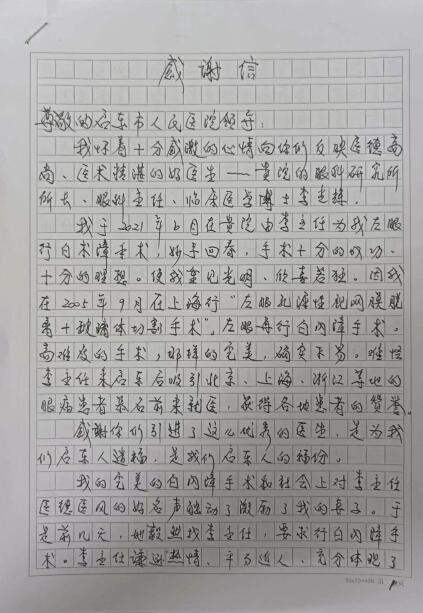 感谢信
尊敬的启东市人民医院领导:
我怀着十分感激的心情向你们反映医德高
尚、医术精湛的好医生——贵院的眼科研究所
所长、眼科主任、临床医学博士李
我于2021年6月在贵院由李主任为我左眼
行白术障手术,妙手回春,手术十分的成功、
十分的理想。使我重见光明、欣喜若狂。因我
在2005年9月在上海行"左眼孔源性视网膜脱
离+玻璃体切割手术",左眼再行白内障手术。
高难度的手术,那样的完美,确实不易。难怪
李主任来启东后吸引北京、上海、浙江等地的
眼病患者慕名前来就医,获得各地患者的赞誉。
感谢你们引进了这么优秀的医生,是为我
们启东人造福,是我们启东人的福份。
我的完美的白内障手术和社会上对李主任
医德医风的好名声触动了激励了我的妻子。于
是前几天,她毅然找李主任,要求行白内障手
术。李主任谦逊热情、平易近人,充分体现了